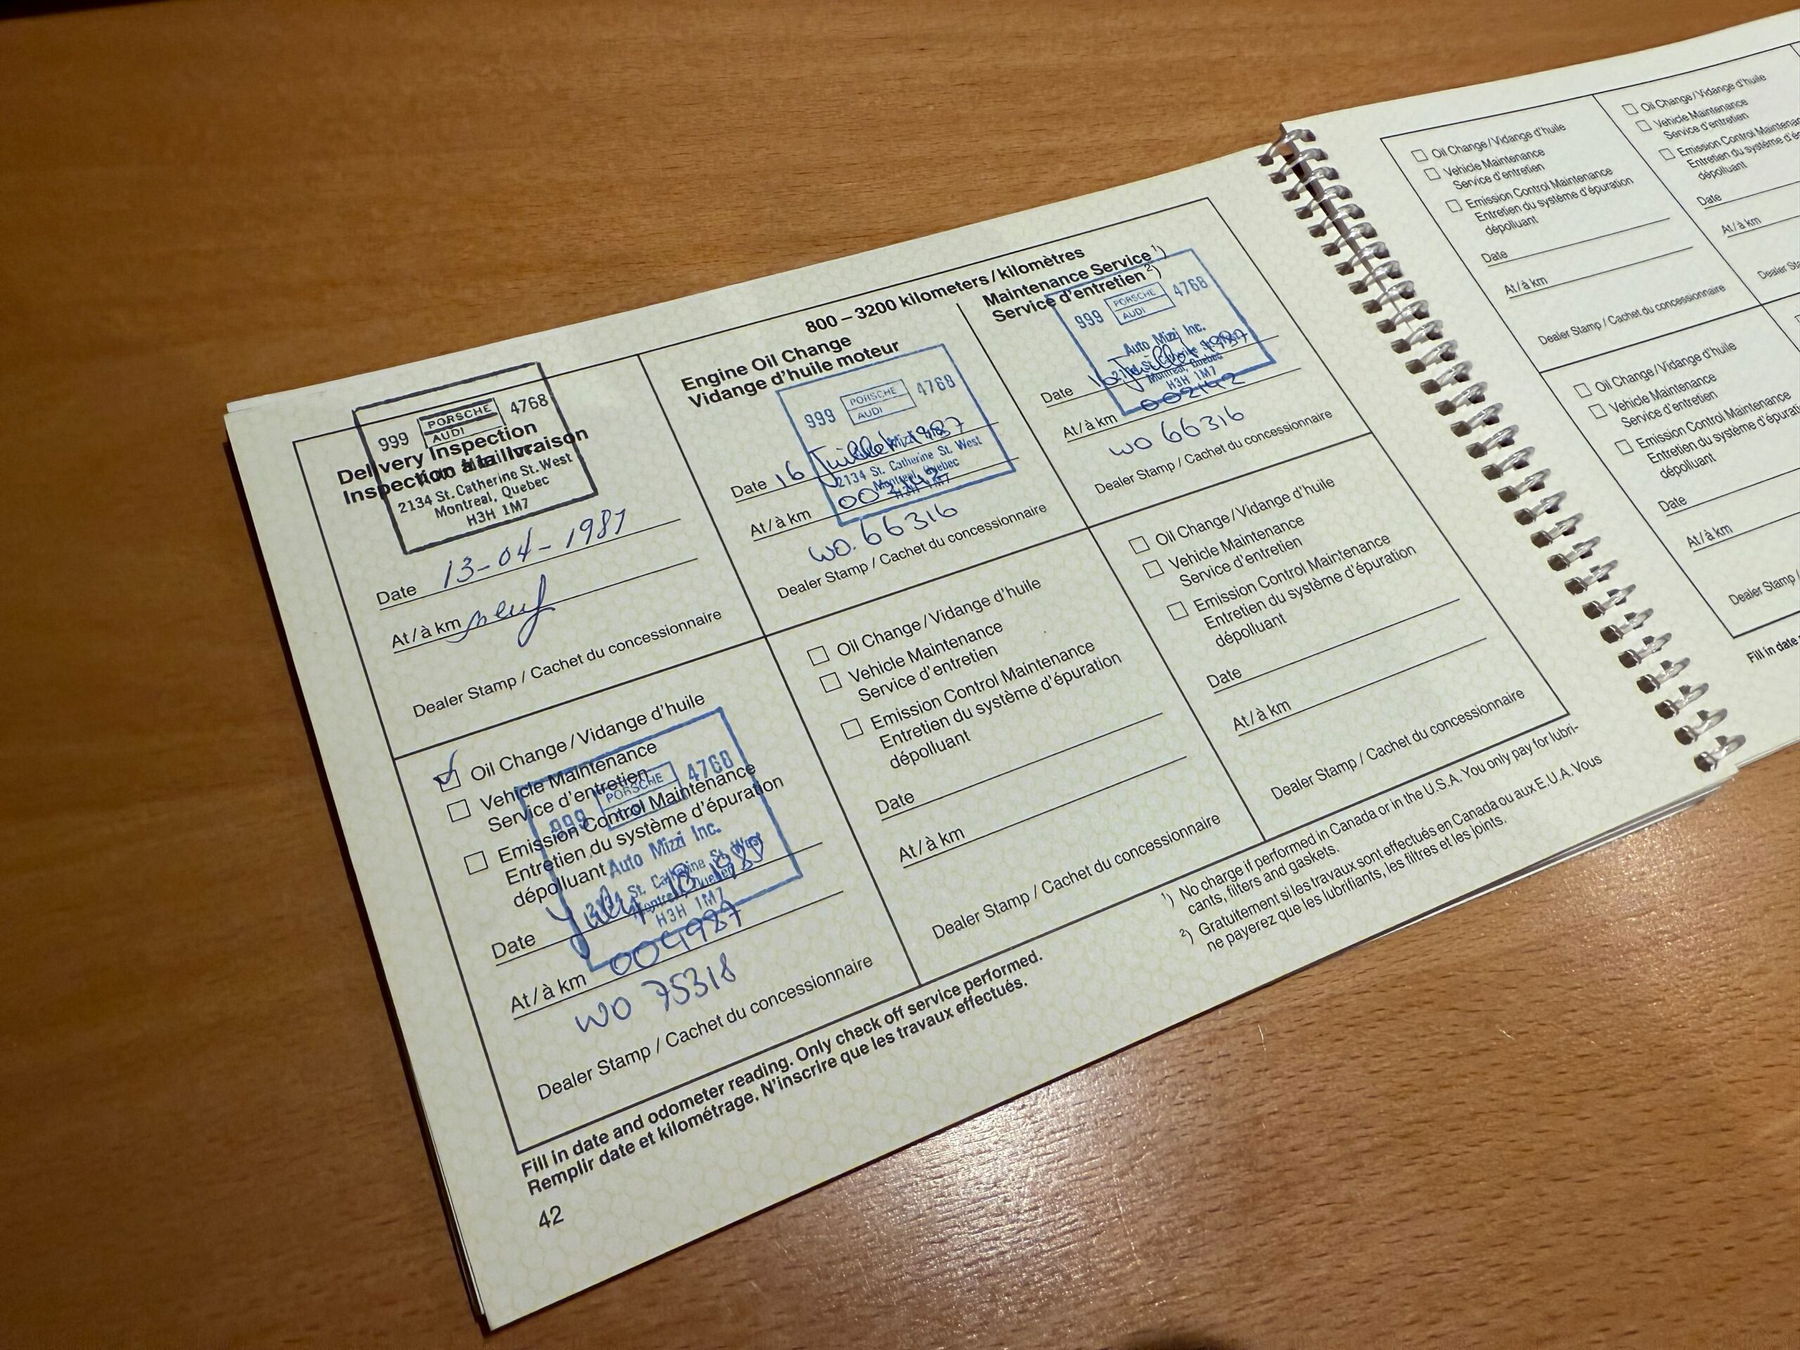 800 – 3200 kilometers/kilomètres
Delivery Inspection
Inspection à la livraison
999 PORSCHE AUDI 4768
2134 St. Catherine St. West
Montreal, Quebec
H3H 1M7
Date 13-04-1987
At/à km neuf
Dealer Stamp / Cachet du concessionnaire
Engine Oil Change
Vidange d'huile moteur
999 PORSCHE AUDI 4768
2134 St. Catherine St. West
Montreal, Quebec
H3H 1M7
Date 16 Juillet 1987
At/à km 002142
WO. 66316
Dealer Stamp / Cachet du concessionnaire
Maintenance Service 1)
Service d'entretien 2)
999 PORSCHE AUDI 4768
Auto Mizzi Inc.
Montreal, Quebec
H3H 1M7
Date 16 Juillet 1987
At/à km 002142
WO 66316
Dealer Stamp / Cachet du concessionnaire
Oil Change/Vidange d'huile
Vehicle Maintenance
Service d'entretien
Emission Control Maintenance
Entretien du système d'épuration
dépolluant
999 PORSCHE 4768
Auto Mizzi Inc.
2134 St. Catherine St. West
Montreal, Quebec
H3H 1M7
Date July 18
At/à km 004987
WO 75318
Dealer Stamp / Cachet du concessionnaire
Oil Change/Vidange d'huile
Vehicle Maintenance
Service d'entretien
Emission Control Maintenance
Entretien du système d'épuration
dépolluant
Date
At/à km
Dealer Stamp / Cachet du concessionnaire
Oil Change/Vidange d'huile
Vehicle Maintenance
Service d'entretien
Emission Control Maintenance
Entretien du système d'épuration
dépolluant
Date
At/à km
Dealer Stamp / Cachet du concessionnaire
Fill in date and odometer reading. Only check off service performed.
Remplir date et kilométrage. N'inscrire que les travaux effectués.
1) No charge if performed in Canada or in the U.S.A. You only pay for lubri-
cants, filters and gaskets.
2) Gratuitement si les travaux sont effectués en Canada ou aux E.U.A. Vous
ne payerez que les lubrifiants, les filtres et les joints.
42
Oil Change/Vidange d'huile
Vehicle Maintenance
Service d'entretien
Emission Control Maintenance
Entretien du système d'épuration
dépolluant
Date
At/à km
Dealer Stamp / Cachet du concessionnaire
Oil Change/Vidange d'huile
Vehicle Maintenance
Service d'entretien
Emission Control
Entretien du système
dépolluant
Date
At/à km
Dealer
Oil Change/Vidange d'huile
Vehicle Maintenance
Service d'entretien
Emission Control Maintenance
Entretien du système d'épuration
dépolluant
Date
At/à km
Dealer Stamp /
Fill in date